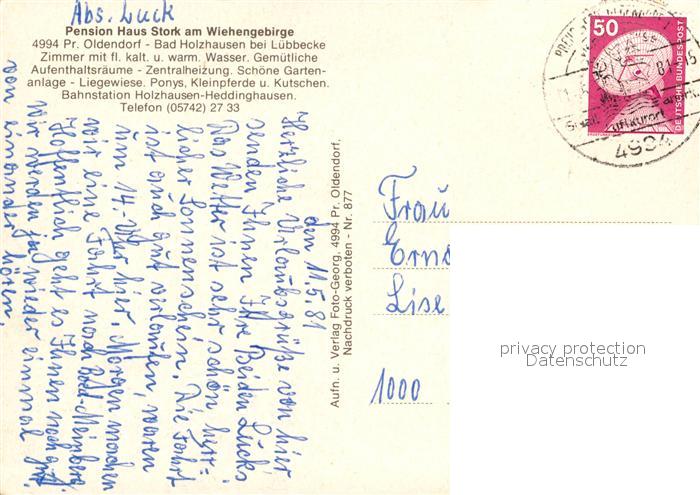 Abs. Luck
Pension Haus Stork am Wiehengebirge
4994 Pr. Oldendorf - Bad Holzhausen bei Lübbecke
Zimmer mit fl. kalt. u. warm. Wasser. Gemütliche
Aufenthaltsräume - Zentralheizung. Schöne Garten-
anlage - Liegewiese. Ponys, Kleinpferde u. Kutschen.
Bahnstation Holzhausen-Heddinghausen.
Telefon (05742) 27 33
den 11.5.81
Herzliche Urlaubsgrüße von hier
senden Ihnen Ihre Beiden Lucks
Das Wetter ist sehr schön herr=
licher Sonnenschein. Die Fahrt
ist auch gut verlaufen, waren
um 14.- Uhr hier. Morgen machen
wir eine Fahrt nach Bad-Meinberg
Hoffentlich geht es Ihnen noch gut
wir werden ja wieder einmal
von einander hören.
Aufn. u. Verlag Foto-Georg. 4994 Pr. Oldendorf.
Nachdruck verboten - Nr. 877
50
DEUTSCHE BUNDESPOST
Luftkurort
4994
Frau
Erns
Lise
1000
privacy protection
Datenschutz